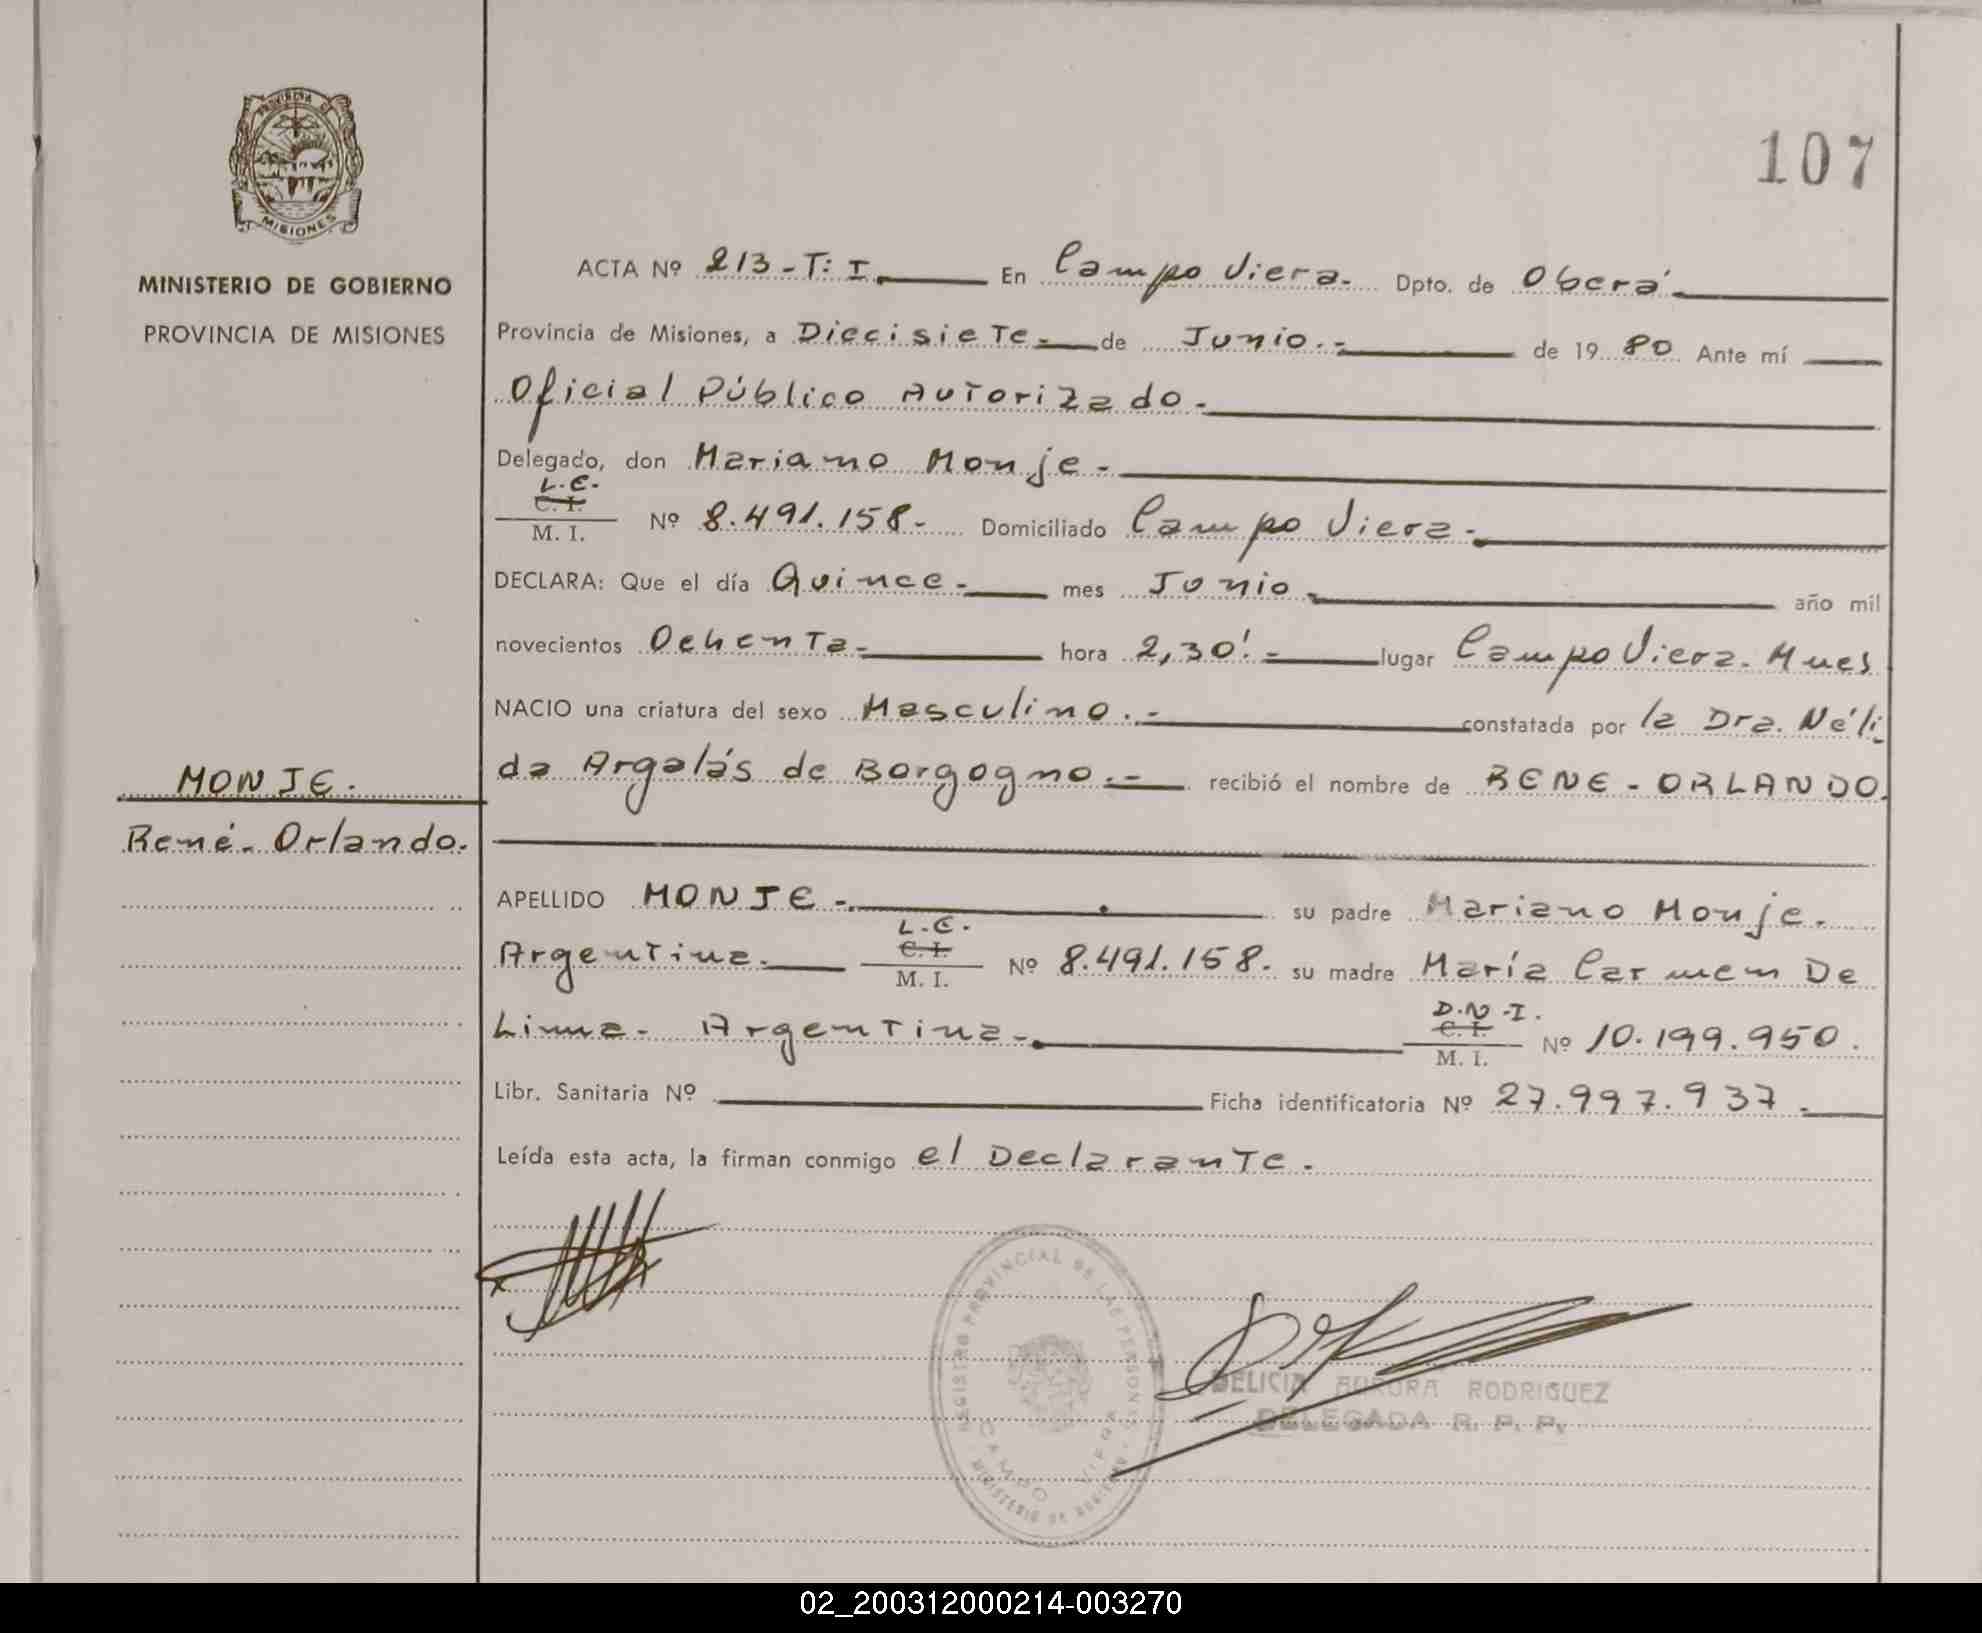 PROVINCIA DE
MISIONES
MINISTERIO DE GOBIERNO
PROVINCIA DE MISIONES
MONJE.
René - Orlando.
107
ACTA Nº 213 - T: I. En Campo Viera. Dpto. de Oberá
Provincia de Misiones, a Diecisiete. de Junio. - de 1980 Ante mí
Oficial Público Autorizado.
Delegado, don Mariano Monje -
L.E.
C. I.
M. I. Nº 8.491.158.- Domiciliado Campo Viera.
DECLARA: Que el día Quince - mes Junio año mil
novecientos Ochenta - hora 2,30'.- lugar Campo Viera. Mnes
NACIO una criatura del sexo Masculino. - constatada por la Dra. Néli
da Argalás de Borgogno. - recibió el nombre de RENE - ORLANDO.
APELLIDO MONJE - su padre Mariano Monje.
L.E.
C. I.
Argentina. M. I. Nº 8.491.158. su madre María Carmem De
D.N.I.
C. I.
Lima. Argentina. M. I. Nº 10.199.950.
Libr. Sanitaria Nº Ficha identificatoria Nº 27.997.937.
Leída esta acta, la firman conmigo el Declarante.
REGISTRO PROVINCIAL DE LAS PERSONAS
CAMPO VIERA
MINISTERIO DE GOBIERNO
DELICIA AURORA RODRIGUEZ
DELEGADA R. P. P.
02_200312000214-003270